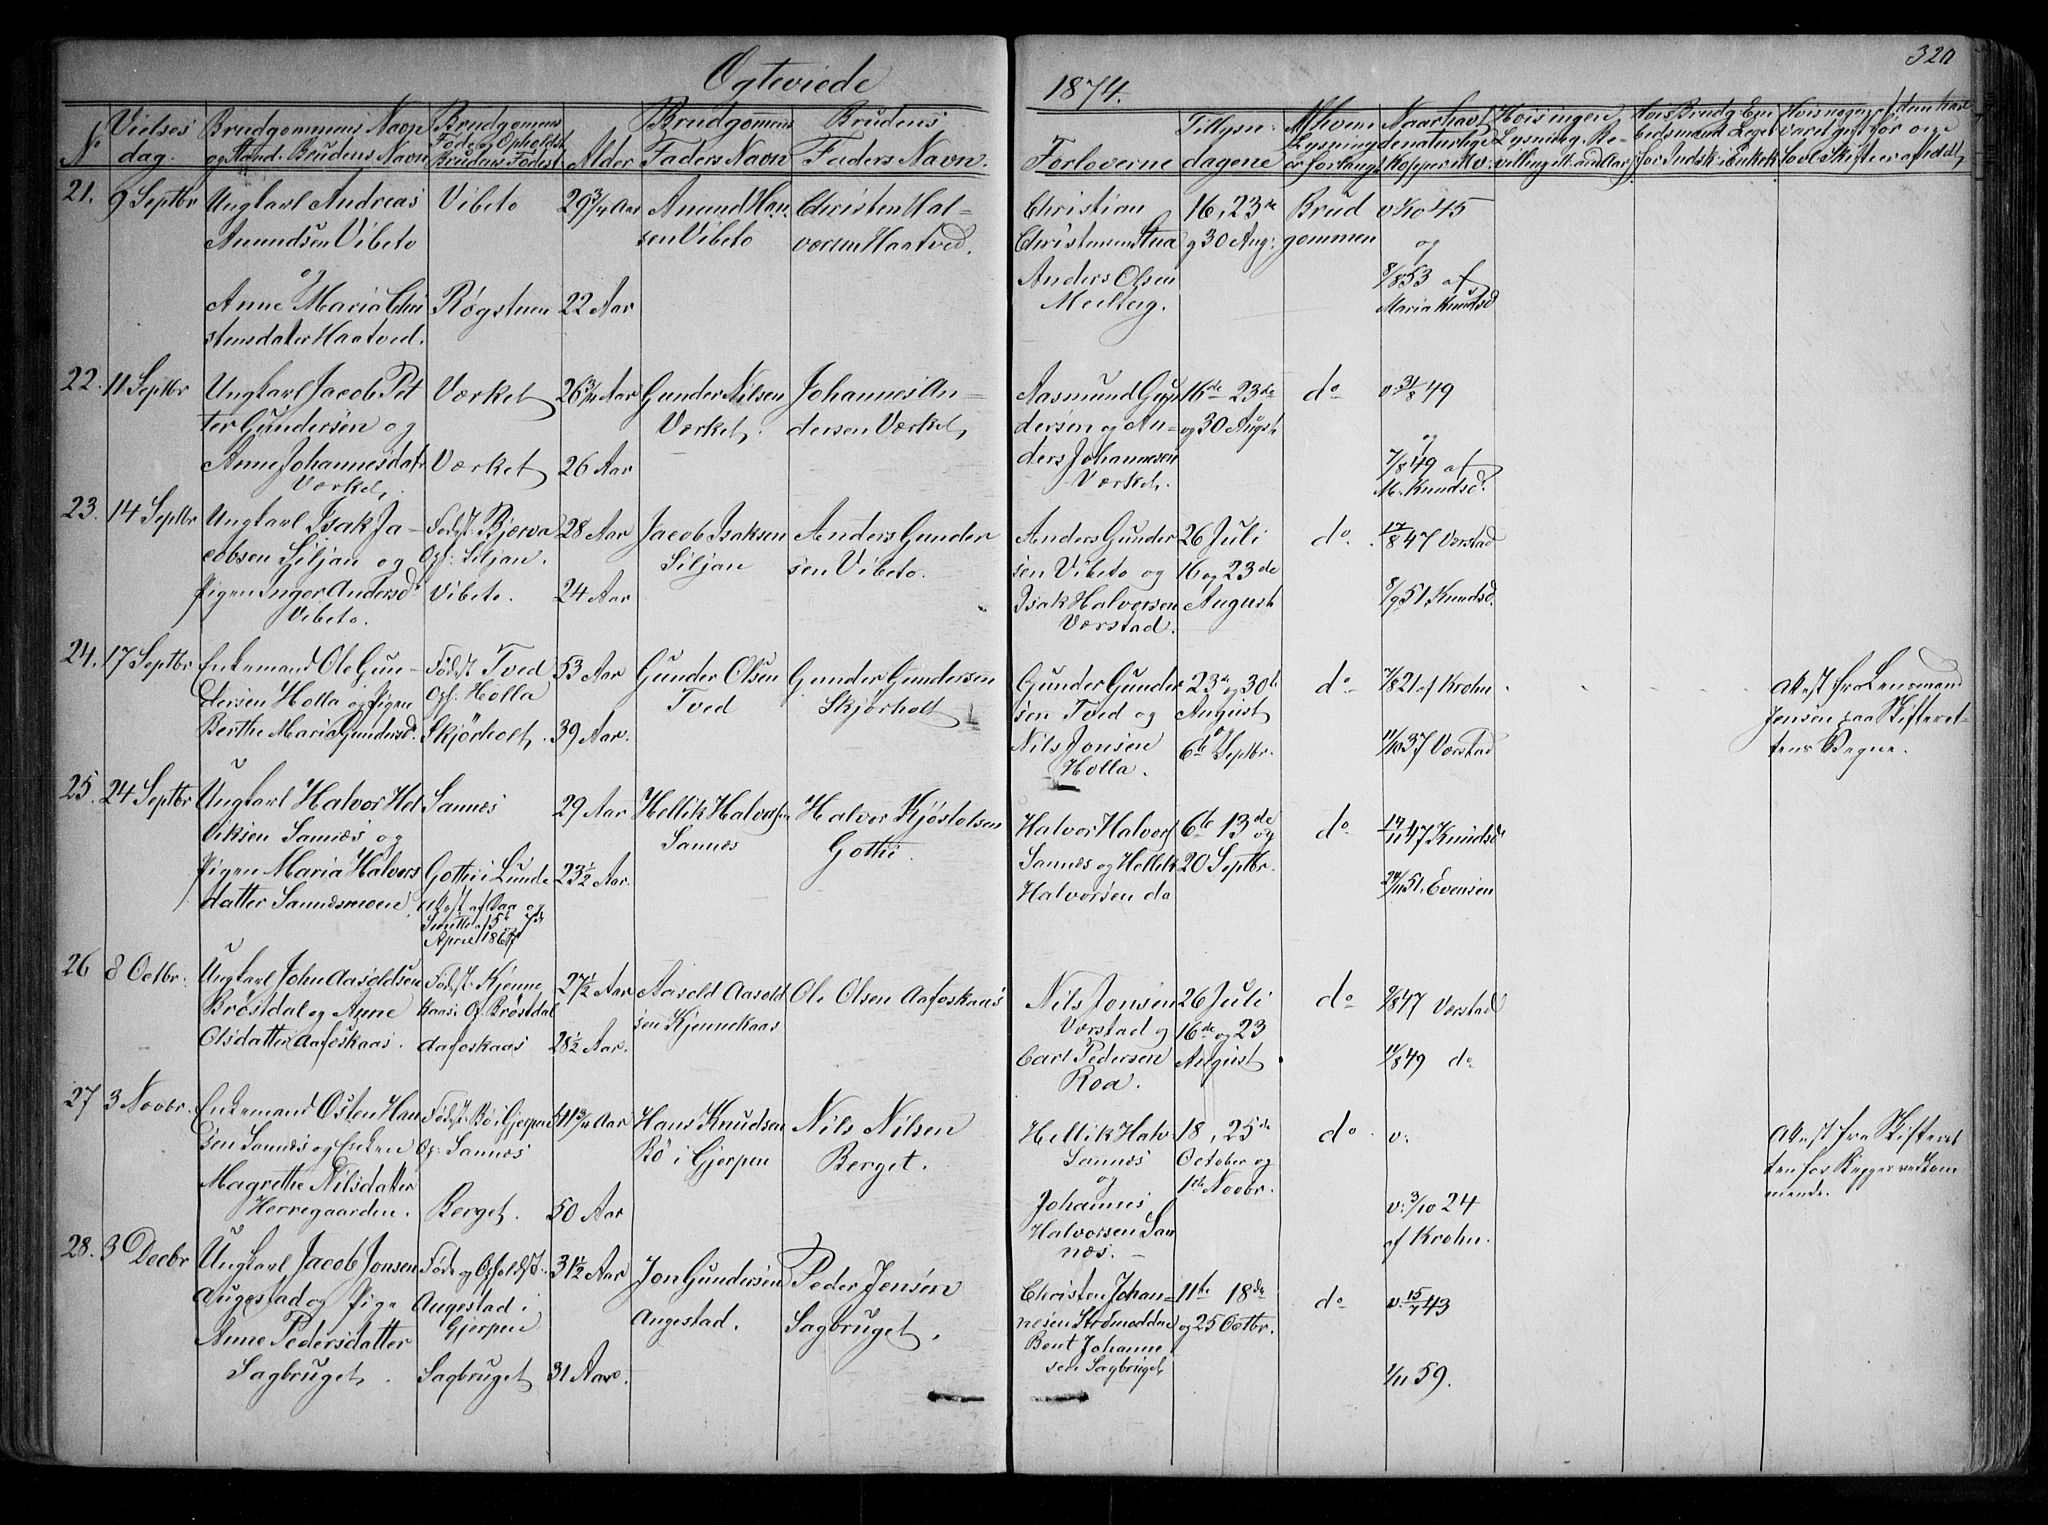 Ogteviede
1874.
320
No
Vielses dag.
Brudgommens Navn og Stand. Brudens Navn
Brudgomens Føde og Opholdst Brudens Fødest.
Alder
Brudgomens Faders Navn
Brudens Faders Navn.
Forloverne
Tillysn. dagene
Af hvem Lysning er forlangt
Naar hav de naturlige Kopper
21.
9 Septbr
Ungkarl Andreas
Amundsen Vibeto
og
Anne Maria Chri
stensdater Haatved.
Vibeto
Røgstuen
29 3/4 Aar
22 Aar
Amund Han
sen Vibeto
Christen Hal=
vorsen Haatved.
Christian
Christensen
Anders Olsen
16, 23de
og 30 Aug:
Brud
gommen
v 1/10 45
og
8/8 53 af
Maria Knudsd
22.
11 Septbr
Ungkarl Jacob Pet
ter Gundersen og
Anne Johannesdatr
Værket.
Værket
Værket
26 3/4 Aar
26 Aar
Gunder Nilsen
Værket.
Johannes An=
dersen Værket,
Aasmund Gun
dersen og An=
ders Johannesen
Værket.
16de 23de
og 30 Augst
do
v. 31/8 49
og
7/8 49 af
M. Knudsd.
23.
14 Septbr
Ungkarl Isak Ja=
cobsen Siljan og
Pigen Inger Andersd
Vibeto.
Fødst: Bjerva
Opf: Siljan.
Vibeto.
28 Aar
24 Aar
Jacob Isaksen
Siljan
Anders Gunder
sen Vibeto.
Anders Gunder
sen Vibeto og
Isak Halvorsen
Værstad.
26 Juli
16 og 23de
August
do.
17/8 47 Værstad
8/9 51. Knudsd.
24.
17 Septbr
Enkemand Ole Gun=
dersen Holla og Pigen
Berthe Maria Gundersd.
Fødst: Tved
Opf: Holla
Skjørholt.
53 Aar
39 Aar.
Gunder Olsen
Tved
Gunder Gundersen
Skjørholt
Gunder Gunder
sen Tved og
Nils Jonsen
Holla.
23de og 30te
August
6te Septbr.
do
7/8 21 af Krohn
11/10 37 Værstad
Atest fra Lensmand
Jensen paa Skifteret
tens Vegne.
25.
24 Septbr
Ungkarl Halvor Hel
liksen Sannes og
Pigen Maria Halvors
datter Sannesmoen
Sannes
Gothe i Lunde
Atest af Baa og
April 1867
29 Aar
23 1/2 Aar.
Hellik Halvorsen
Sannes
Halvor Kjøstolsen
Gothe.
Halvor Halvors
Sannes og Hellik
Halvorsen do
6te 13de og
20 Septbr.
do
14/11 47 Knudsd
24/11 51. Evensen
26
8 Octbr.
Ungkarl John Aasoldsen
Brøstdal og Anne
Olsdatter Aafoskaas.
Fødst: Kjenne
kaas. Of: Brøstdal
Aafoskaas
27 1/2 Aar
28 1/2 Aar.
Aasold Aasold
sen Kjennekaas
Ole Olsen Aafoskaas
Nils Jonsen
Værstad og
Carl Pedersen
Roa.
26 Juli
16de og 23
August
do
9/8 47 Værstad
11/8 49 do
27
3 Novbr.
Enkemand Osten Han
sen Sannes og Enken
Magrethe Nilsdatter
Herregaarden.
Fødst: Bø i Gjerpen
Op: Sannes
Berget.
41 3/4 Aar
50 Aar
Hans Knudsen
Bø i Gjerpen
Nils Nilsen
Berget.
Hellik Halv.
Sannes
og
Johannes
Halvorsen San
nes.
18, 25de
October og
1ste Novbr.
do
v:
v: 3/10 24
af Krohn.
Atest fra Skifteret
ten for Begge vedkom
mende.
28.
3 Decbr
Ungkarl Jacob Jonsen
Augestad og Pige
Anne Pedersdatter
Sagbruget.
Føde og Opholdst:
Augestad i
Gjerpen
Sagbruget
31 1/2 Aar
31 Aar.
Jon Gundersen
Augestad.
Peder Jensen
Sagbruget.
Christen Johan=
nesen Strømodden
Bent Johanne
sen Sagbruget
11te 18de
og 25 Octbr.
do
v: 15/7 43
1/11 59.